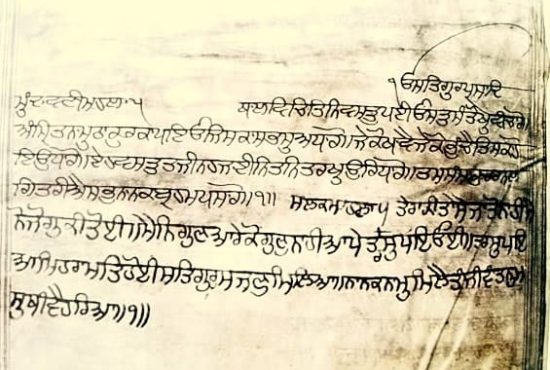 ੴਸਤਿਗੁਰਪ੍ਰਸਾਦਿ
ਮੁੰਦਾਵਣੀਮਹਲਾ੫ ਥਾਲਵਿਚਿਤਿੰਨਿਵਸਤੂਪਈਓਸਤੁਸੰਤੋਖੁਵੀਚਾਰੋ॥
ਅੰਮ੍ਰਿਤਨਾਮੁਠਾਕੁਰਕਾਪਇਓਜਿਸਕਾਸਭਸੁਅਧਾਰੋ॥ਜੇਕੋਖਾਵੈਜੇਕੋਭੁੰਚੈਤਿਸਕਾਹੋ
ਇਉਧਾਰੋ॥ਏਹਵਸਤੁਤਜੀਨਹਜਾਈਨਿਤਨਿਤਰਖੁਉਰਿਧਾਰੋ॥ਤਮਸੰਸਾਰੁਚਰਨਲ
ਗਿਤਰੀਐਸਭੁਨਾਨਕਬ੍ਰਹਮਪਸਾਰੋ॥੧॥ ਸਲੋਕਮਹਲਾ੫ ਤੇਰਾਕੀਤਾਜਾਤੋਨਾਹੀਮੈ
ਨੋਜੋਗੁਕੀਤੋਈ॥ਮੈਨਿਗੁਣਆਰੇਕੋਗੁਣੁਨਾਹੀਆਪੇਤਰਸੁਪਇਓਈ॥ਤਰਸੁਪਇ
ਆਮਿਹਰਾਮਤਿਹੋਈਸਤਿਗੁਰੁਸਜਣੁਮਿਲਿਆ॥ਨਾਨਕਨਾਮੁਮਿਲੈਤਾਂਜੀਵਾਂਤਨੁਮ
ਨੁਥੀਵੈਹਰਿਆ॥੧॥